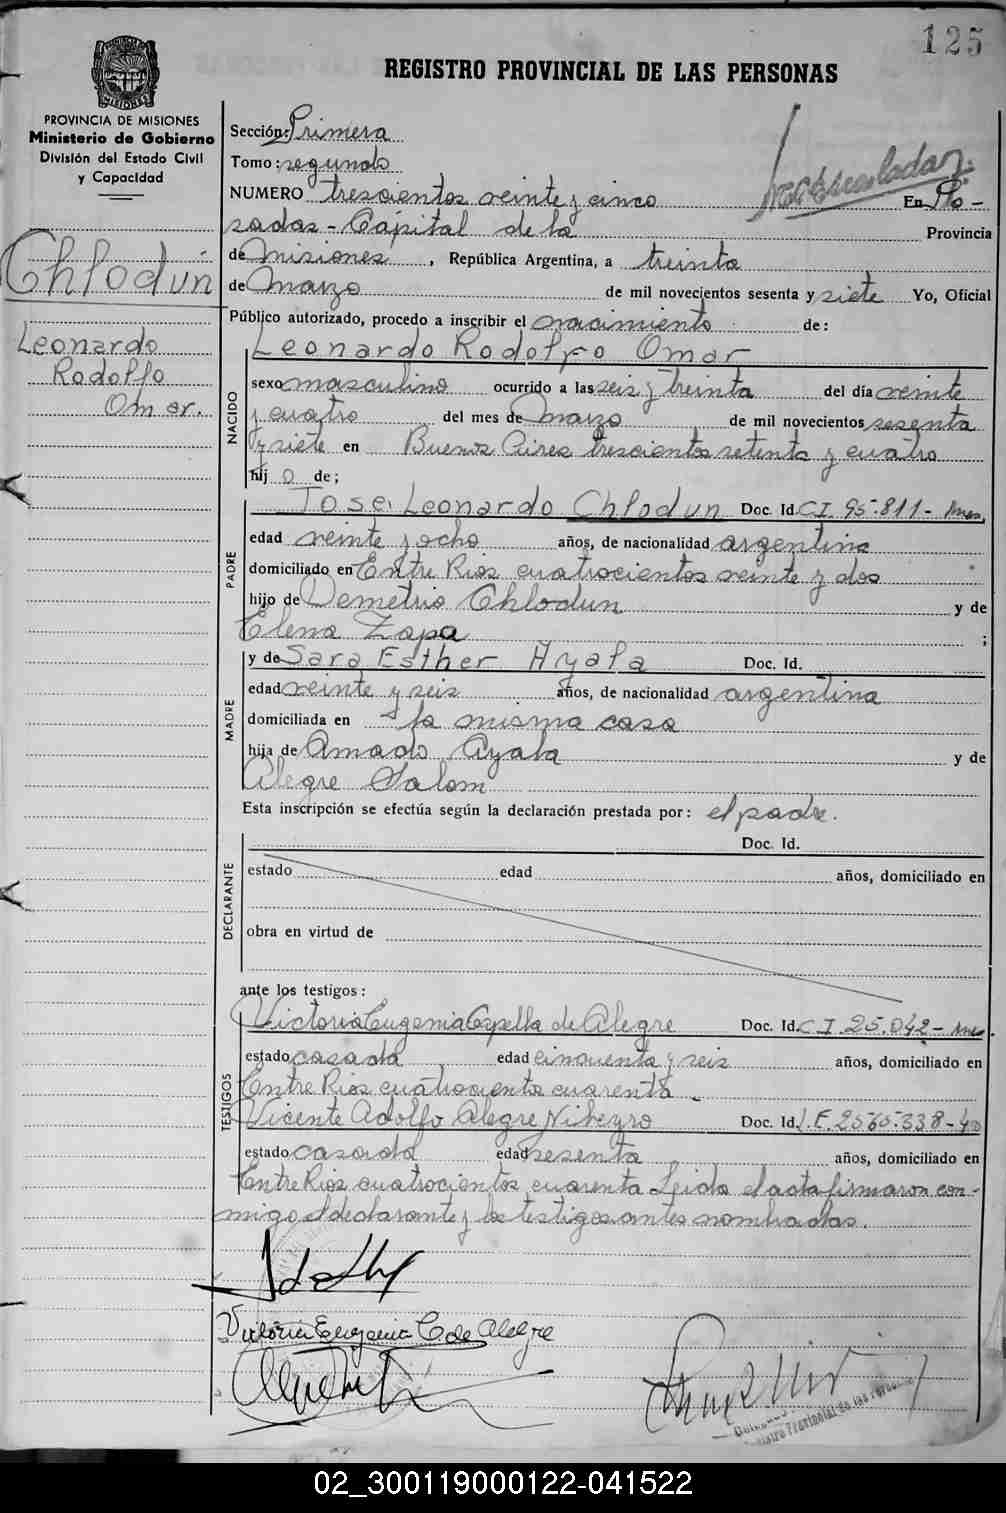 125
REGISTRO PROVINCIAL DE LAS PERSONAS
PROVINCIA DE MISIONES
Ministerio de Gobierno
División del Estado Civil
y Capacidad
Sección: Primera
Tomo: segundo
NUMERO trescientos veinte y cinco En Po-
sadas - Capital de la Provincia
de Misiones, República Argentina, a treinta
de Marzo de mil novecientos sesenta y siete Yo, Oficial
Público autorizado, procedo a inscribir el nacimiento de:
Chlodún
Leonardo
Rodolfo
Omar.
NACIDO
Leonardo Rodolfo Omar
sexo masculino ocurrido a las seis y treinta del día veinte
y cuatro del mes de Marzo de mil novecientos sesenta
y siete en Buenos Aires trescientos setenta y cuatro
hij o de;
PADRE
José Leonardo Chlodun Doc. Id. C.I. 95.811-
edad veinte y ocho años, de nacionalidad argentina
domiciliado en Entre Rios cuatrocientos veinte y dos
hijo de Demetrio Chlodun y de
Elena Zapa ;
MADRE
y de Sara Esther Ayala Doc. Id.
edad veinte y seis años, de nacionalidad argentina
domiciliada en la misma casa
hija de Amado Ayala y de
Alegre Salom
Esta inscripción se efectúa según la declaración prestada por: el padre.
DECLARANTE
Doc. Id.
estado edad años, domiciliado en
obra en virtud de
ante los testigos:
TESTIGOS
Victoria Eugenia Capella de Alegre Doc. Id. C.I. 25.042-
estado casada edad cincuenta y seis años, domiciliado en
Entre Rios cuatrociento cuarenta -
Vicente Adolfo Alegre Doc. Id. L.E. 2565.338-
estado casado edad sesenta años, domiciliado en
Entre Rios cuatrocientos cuarenta Leida el acta firmaron con-
migo el declarante y los testigos antes nombrados.
Victoria Eugenia C. de Alegre
Registro Provincial de las Personas
02_300119000122-041522